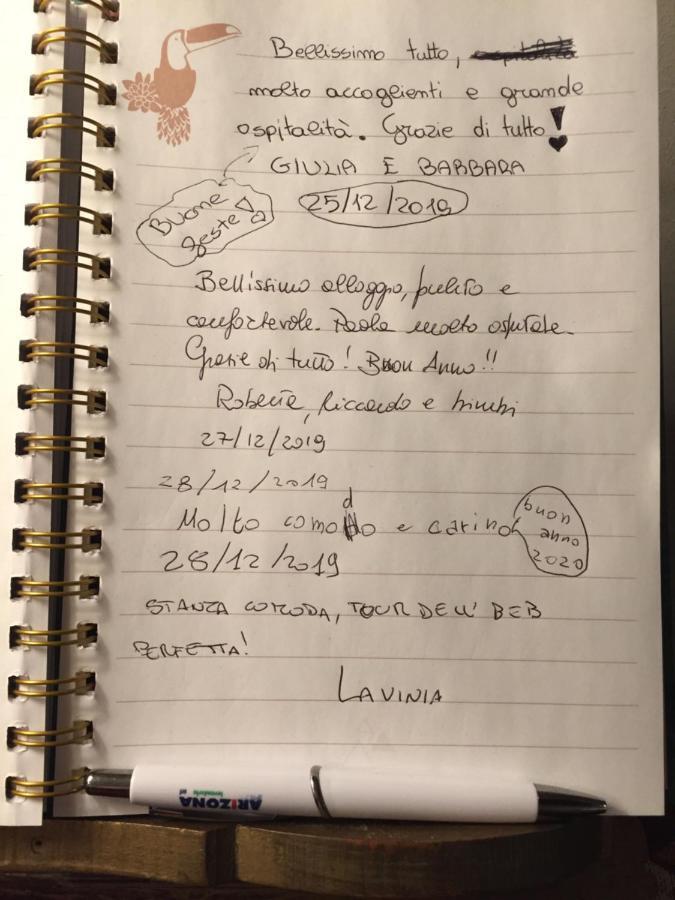 Bellissimo tutto,
molto accoglienti e grande
ospitalità. Grazie di tutto!
GIULIA E BARBARA
Buone
feste!
25/12/2019
Bellissimo alloggio, pulito e
confortevole. Paola molto ospitale.
Grazie di tutto! Buon Anno!!
Roberta, Riccardo e bimbi
27/12/2019
28/12/2019
Molto comodo e carino
buon
anno
2020
28/12/2019
STANZA COMODA, TOUR DELL' BEB
PERFETTA!
LAVINIA
ARIZONA